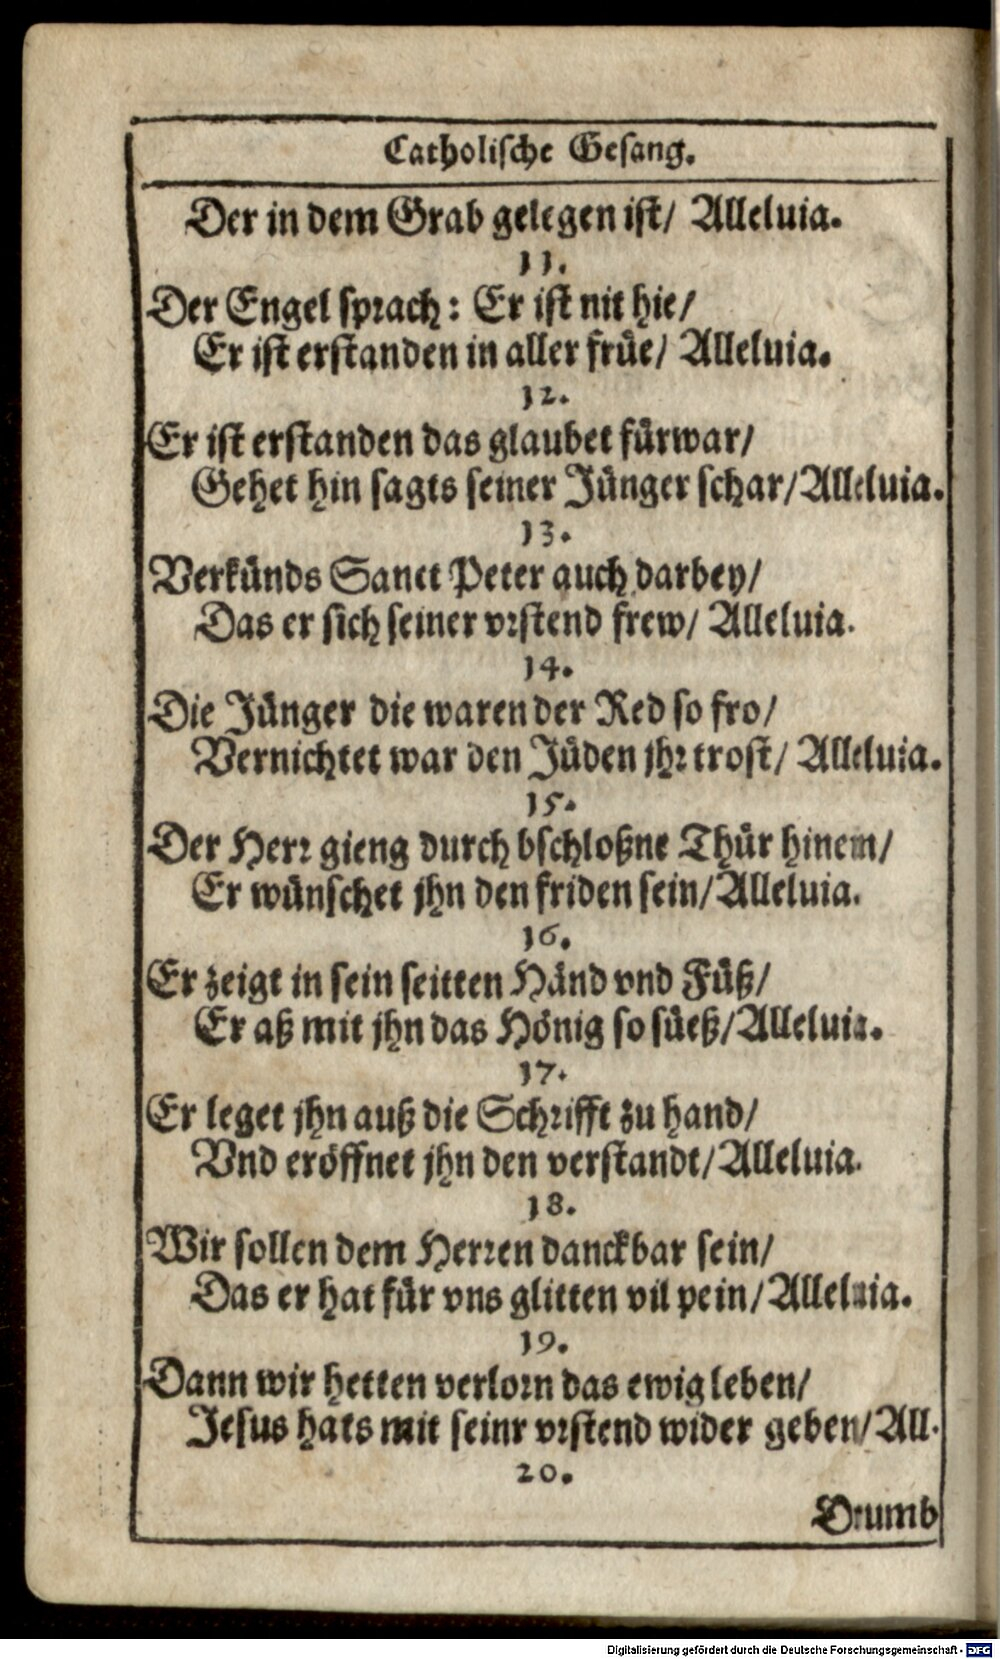 Catholische Gesang.
Der in dem Grab gelegen ist/ Alleluia.
11.
Der Engel sprach: Er ist nit hie/
Er ist erstanden in aller früe/ Alleluia.
12.
Er ist erstanden das glaubet fürwar/
Gehet hin sagts seiner Jünger schar/ Alleluia.
13.
Verkünds Sanct Peter auch darbey/
Das er sich seiner vrstend frew/ Alleluia.
14.
Die Jünger die waren der Red so fro/
Vernichtet war den Jüden jhr trost/ Alleluia.
15.
Der Herr gieng durch bschloßne Thür hinein/
Er wünschet jhn den friden sein/ Alleluia.
16.
Er zeigt in sein seitten Händ vnd Füß/
Er aß mit jhn das Hönig so süeß/ Alleluia.
17.
Er leget jhn auß die Schrifft zu hand/
Vnd eröffnet jhn den verstandt/ Alleluia.
18.
Wir sollen dem Herren danckbar sein/
Das er hat für vns glitten vil pein/ Alleluia.
19.
Dann wir hetten verlorn das ewig leben/
Jesus hats mit seinr vrstend wider geben/ All.
20.
Drumb
Digitalisierung gefördert durch die Deutsche Forschungsgemeinschaft - DFG